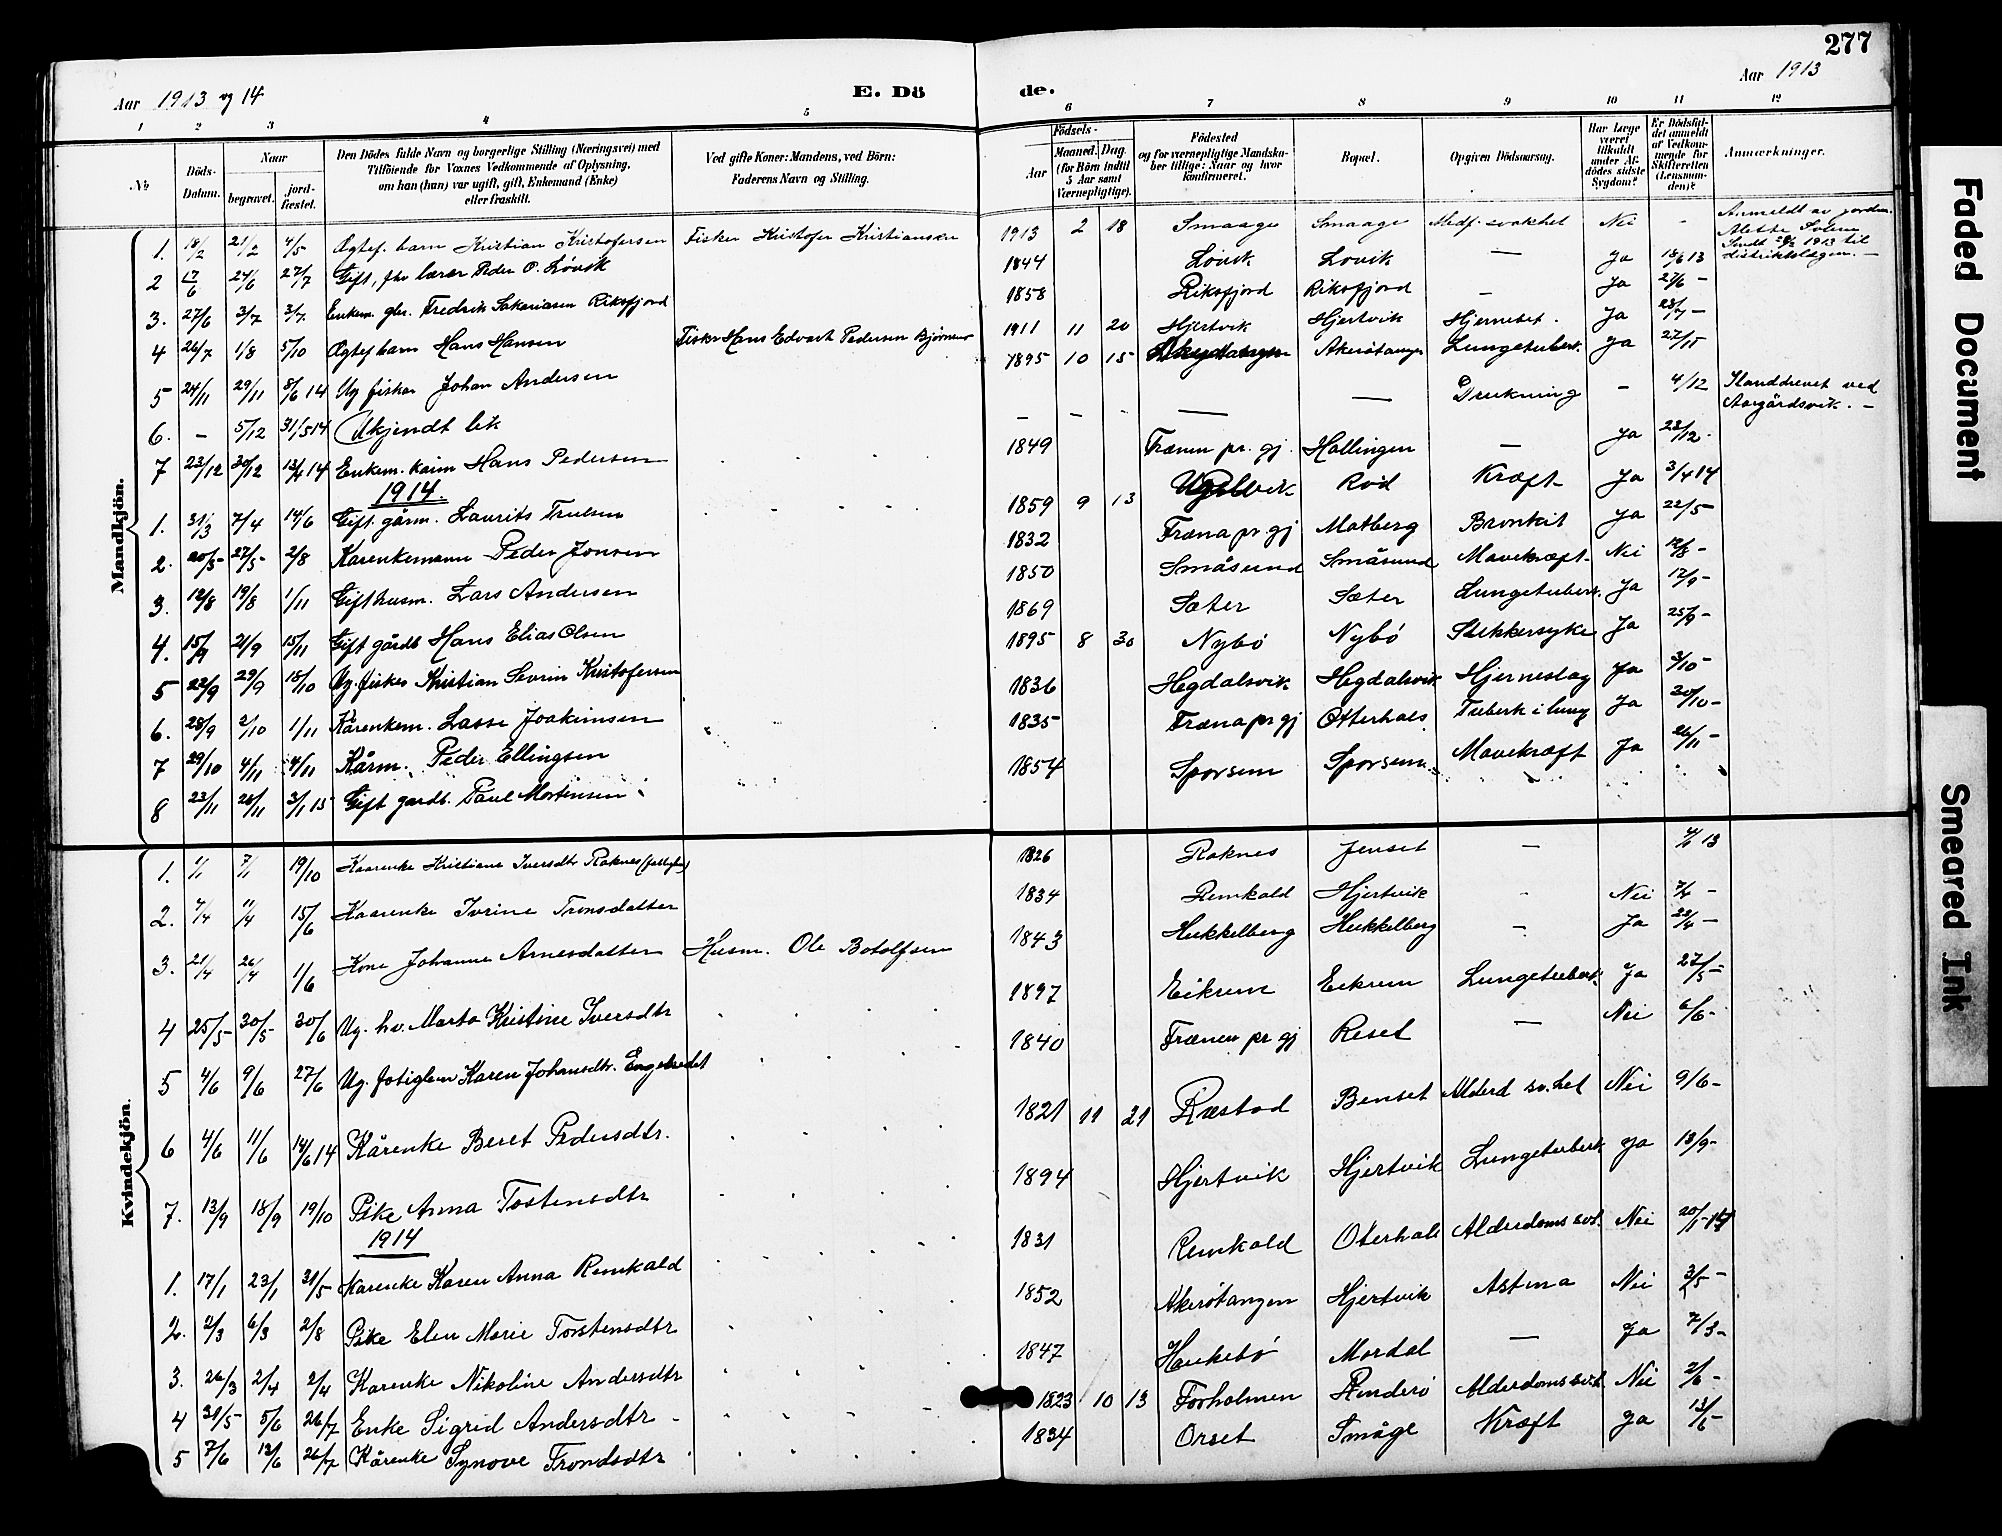 277
Aar 1913 og 14
E. Dö
de.
Aar 1913
1 2 3 4 5 6 7 8 9 10 11 12
No
Döds-Datum.
Naar
begravet.
jord-fæstet.
Den Dödes fulde Navn og borgerlige Stilling (Næringsvei) med
Tilföiende for Voxnes Vedkommende af Oplysning,
om han (hun) var ugift, gift, Enkemand (Enke)
eller fraskilt.
Ved gifte Koner: Mandens, ved Börn:
Faderens Navn og Stilling.
Födsels-
Aar
Maaned. Dag.
(for Börn indtil
5 Aar samt
Værnepligtige).
Födested
og for værnepligtige Mandska-
ber tillige: Naar og hvor
konfirmeret.
Bopæl.
Opgiven Dödsaarsag.
Har Læge
været
tilkaldt
under Af-
dödes sidste
Sygdom?
Er Dödsfal-
det anmeldt
af Vedkom-
mende for
Skifteretten
(Lensman-
den)?
Anmærkninger.
Mandkjön.
1. 18/2 21/2 4/5 Ægtef. barn Kristian Kristofersen Fisker Kristofer Kristiansen 1913 2 18 Smaage Smaage Medf. svakhet Nei - Anmeldt av jordm.
Mette Solem
Sendt 28/2 1913 til
distriktslægen. -
2 17/6 24/6 27/7 Gift, fhv lærer Peder O. Løvik 1844 Løvik Lovik - Ja 18/6 13
3. 27/6 3/7 3/7. Enkem. gbr. Fredrik Sakariasen Riksfjord 1858 Riksfjord Riksfjord - Ja 27/6 -
4 26/7 1/8 5/10 Ægtef barn Hans Hansen Fisker Hans Edvart Pedersen 1911 11 20 Hjertvik Hjertvik Hjernebet. Ja 28/7 -
5 24/11 29/11 8/6 14 Ug fisker Johan Andersen 1895 10 15 Akerötangen Lungetuberk. Ja 27/11
6. - 5/12 31/5 14 Ukjendt lik - - - - - Drukning - 4/12 Ilanddrevet ved
Aargårdsvik. -
7 23/12 30/12 13/4 14 Enkem. Hans Pedersen 1849 Frænen pr. gj. Hallingen - Ja 23/12.
1914.
1. 31/3 7/4 14/6 Gift. gårm. Laurits Trulsen 1859 9 13 Ugelvik Rød Kræft Ja 3/4 14
2. 20/5 27/5 2/8 Kårenkemann Peder Jonsen 1832 Fræna pr gj Malberg Bronkit Ja 22/5 -
3. 12/8 19/8 1/11 Gift husm. Lars Andersen 1850 Småsund Småsund Mavekræft. Nei
4. 15/9 21/9 15/11 Gift gårdb Hans Elias Olsen 1869 Sæter Sæter Lungetuberk. Ja 17/9 -
5 23/9 29/9 18/10 Ug. fisker Kristian Sevrin Kristofersen 1895 8 30 Nybø Nybø Sukkersyke Ja 25/9 -
6. 28/9 2/10 1/11 Kårenkem. Lasse Joakimsen 1836 Hegdalsvik Hegdalsvik Hjerneslag Ja 3/10 -
7 29/10 4/11 4/11 Kårm. Peder Ellingsen 1835 Fræna pr gj Otterhals Tuberk i lung Ja 30/10 -
8 23/11 28/11 3/1 15 Gift gardb. Paul Mortensen 1854 Sporsem Sporsem Mavekræft Ja 26/11 -
Kvindekjön.
1. 1/1 7/1 19/10 Kaarenke Kristiane Iversdtr Raknes 1826 Raknes Jenset - 4/1 13
2. 4/4 11/4 15/6 Kaarenke Ivrine Tronsdatter 1834 Remkald Hjertvik - Nei 7/4 -
3. 21/4 26/4 1/6 Kone Johanne Arnesdatter Husm. Ole Botolfsen 1843 Hukkelberg Hukkelberg - Ja 22/4 -
4 25/5 30/5 30/6 Ug. hv. Marta Kristine Iversdtr 1897 Eikrem Eikrem Lungetuberk. Ja 27/5 -
5 4/6 9/6 27/6 Ug. fatiglem Karen Johansdtr. Engelsedet 1840 Frænen pr gj Reset - Nei 6/6 -
6 4/6 11/6 14/6 14 Kårenke Beret Pedersdtr. 1821 11 21 Ræstad Benset Alderd sv.het Nei 9/6 -
7. 13/9 18/9 19/10 Pike Anna Tostensdtr 1894 Hjertvik Hjertvik Lungetuberk Ja 13/9 -
1914
1. 17/1 23/1 31/5 Karenke Karen Anna Remkald 1831 Remkald Oterhals Alderdoms svk. Nei 20/1 14
2. 2/3 6/3 2/8 Pike Elen Marie Torstensdtr 1852 Akerötangen Hjertvik Astma Nei 3/5 -
3. 26/3 2/4 2/4 Karenke Nikoline Andersdtr 1847 Haukebø Mordal - Ja 7/3 -
4 31/5 5/6 26/7 Enke Sigrid Andersdtr 1823 10 13 Forholmen Rinderø Alderdoms svk. Nei 2/6 -
5 7/6 13/6 26/7 Kårenke Synove Trondsdtr 1834 Orset Småge Kræft Ja 13/6 -
Faded Document
Smeared Ink